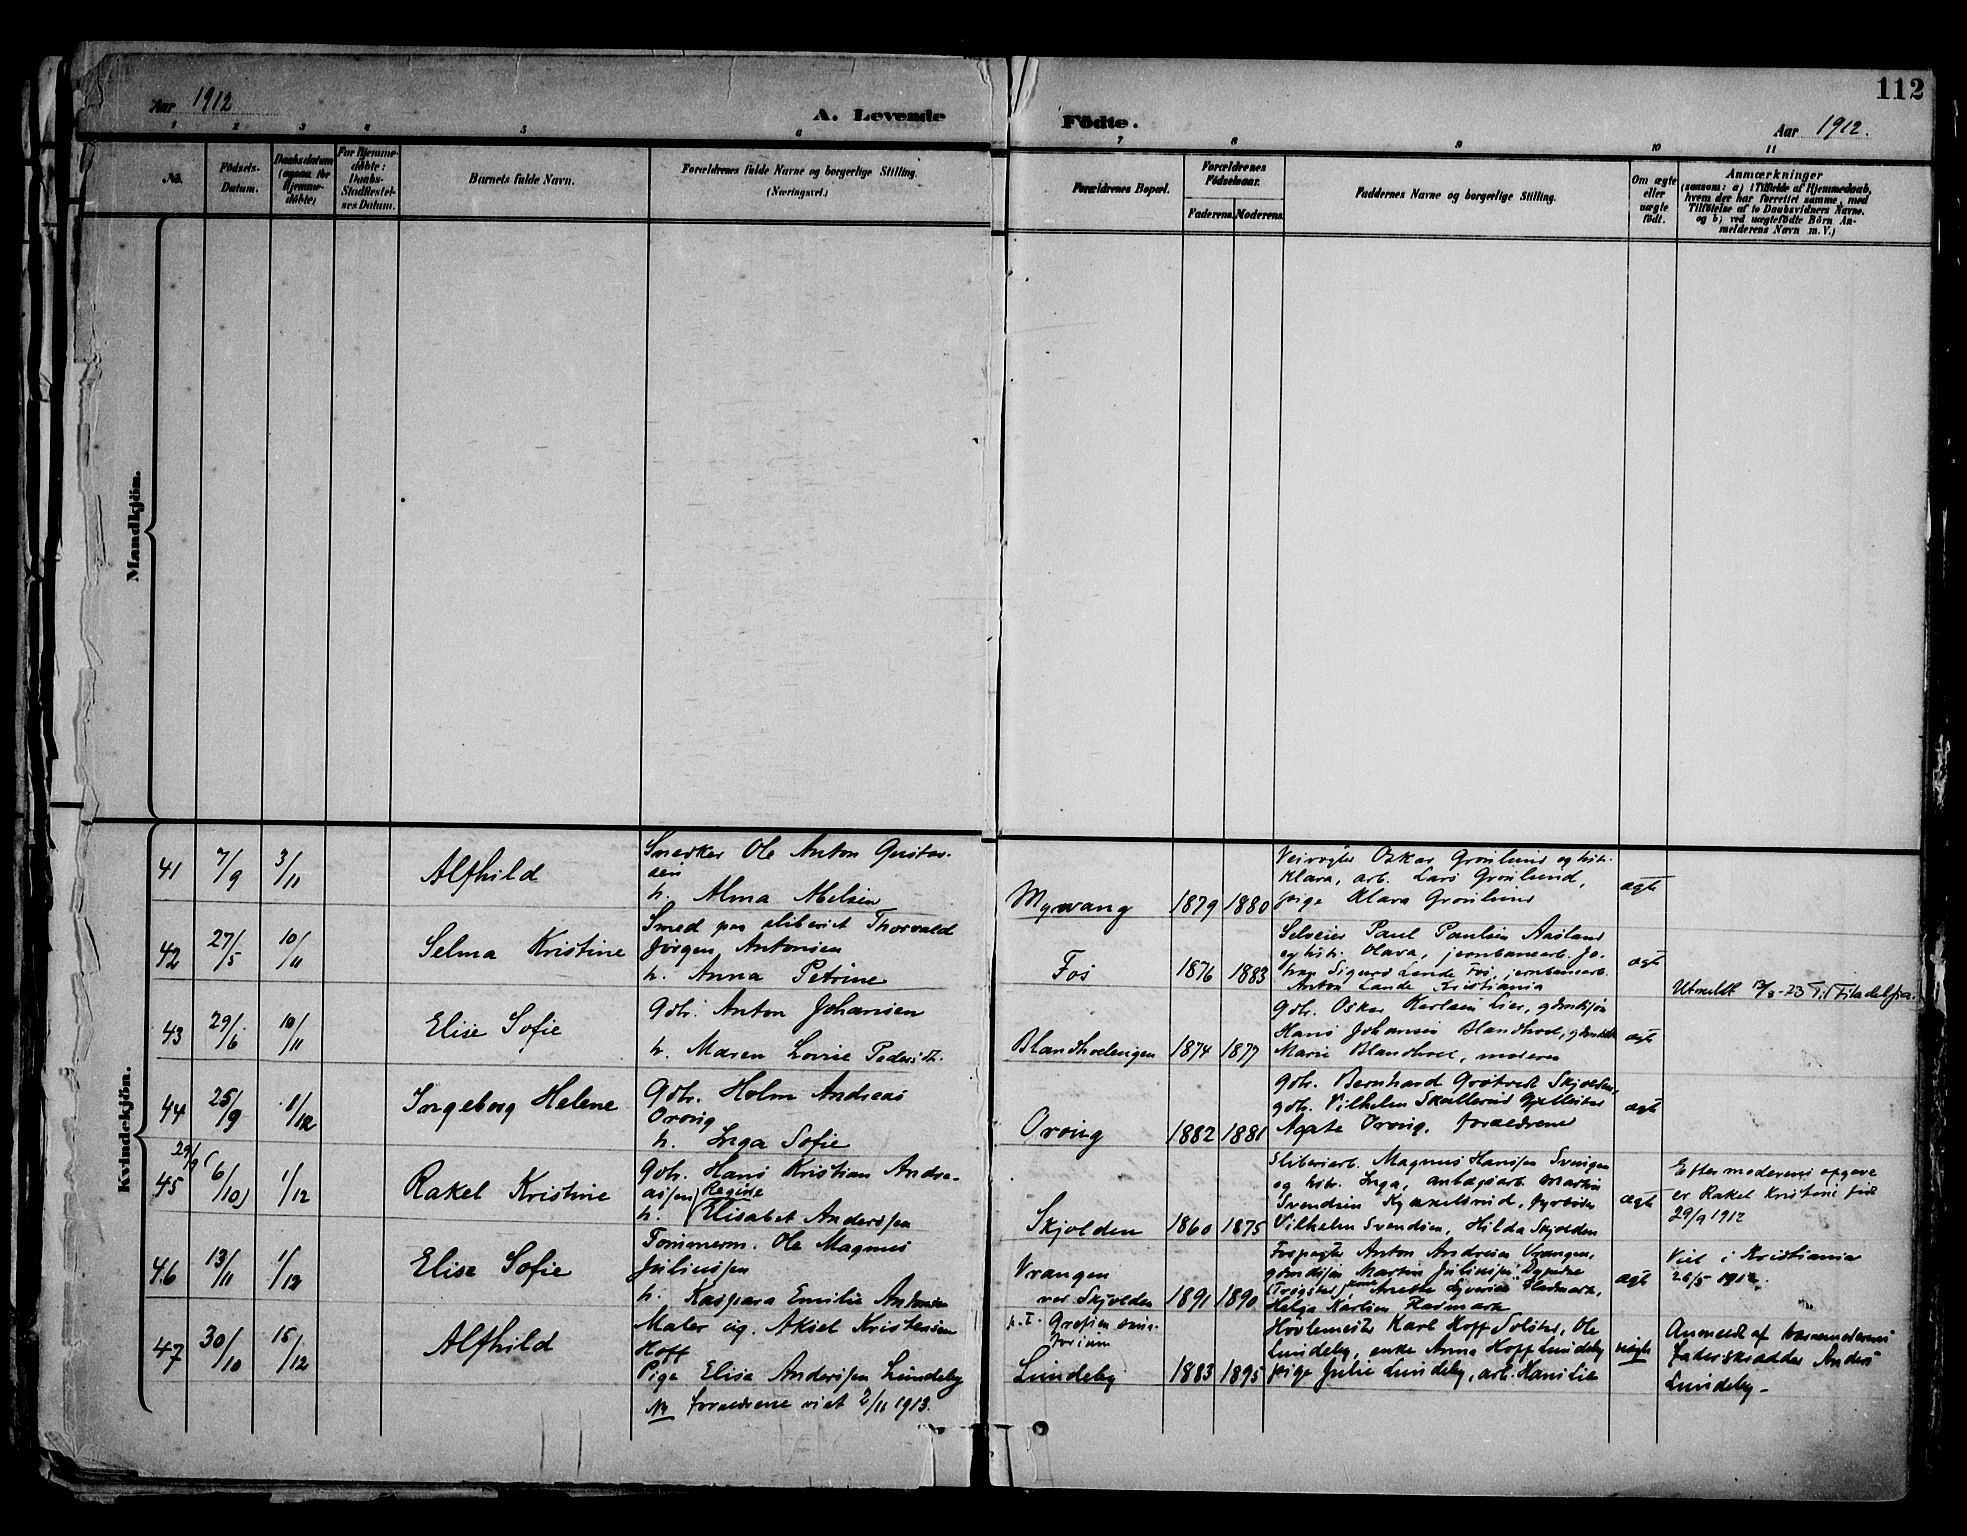 112
Aar 1912
A. Levende
Födte.
Aar 1912.
1 2 3 4 5 6 7 8 9 10 11
No.
Födsels-
Datum.
Daabsdatum
(ogsaa for
Hjemme-
döbte)
For Hjemme-
döbte:
Daabs-
Stadfæstel-
ses Datum.
Barnets fulde Navn.
Forældrenes fulde Navne og borgerlige Stilling.
(Næringsvei.)
Forældrenes Bopæl.
Forældrenes
Födselsaar.
Faderens. Moderens.
Faddernes Navne og borgerlige Stilling.
Om ægte
eller
uægte
født.
Anmærkninger
(saasom: a) i Tilfælde af Hjemmedaab,
hvem der har forrettet samme, med
Tilföielse af to Daabsvidners Navne.
og b) ved uægtefödte Börn An-
melderens Navn m. V.)
Mandkjön.
Kvindekjön.
41 7/9 3/11 Alfhild
Snedker Ole Anton Gustav-
sen
h. Alma Abelsen
Myrvang 1879 1880
Veivogter Oskar Grønlund og hstr.
Klara, arb. Lars Grønlund,
pige Klara Grønlund
ægte
42 27/5 10/11 Selma Kristine
Smed paa sliberiet Thorvald
Jørgen Antonsen
h. Anna Petrine
Fos 1876 1883
Selveier Paul Paulsen Aasland
og hstr. Olava, jernbanearb. Jo-
han Sigurd Lande Fos, jernbanearb.
Anton Lande Kristiania
ægte
Utmeldt 13/8-23 Til Filadelfia.
43 29/6 10/11 Elise Sofie
Gdbr. Anton Johansen
h. Maren Lovise Pedersdtr.
Blandhoelengen 1874 1877
Gdbr. Oskar Karlsen Lier, gdmdsøn
Hans Johansen Blandhoel,
Marie Blandhoel, moderen
ægte
44 25/9 1/12 Ingeborg Helene
Gdbr. Holm Andreas
Ovoug
h. Inga Sofie
1882 1881
gdbr. Bernhard Grøtvedt Skjolden,
gdbr. Vilhelm Skallerud
Agate, forældrene
ægte
45 29/9 (6/10) 1/12 Rakel Kristine
Gdbr. Hans Kristian Andre-
assen
h. Regine Elisabet Anderssen
Skjolden 1860 1875
Sliberiarb. Magnus Hanssen Svengen
og hstr. Inga, anlægsarb. Martin
Svendsen
Vilhelm Svendsen, Hilda Skjolden
ægte
Efter moderens opgave
er Rakel Kristine født
29/9 1912
46 13/11 1/12 Elise Sofie
Tømmerm. Ole Magnus
Juliussen
h. Kaspara Emilie Andersen
Vrangen
ved Skjolden 1891 1890
Anton Andersen Vrangen,
gdmdsøn Martin Juliussen
Helga Karlsen Fladmark
ægte
Viet i Kristiania
26/5 1912.
47 30/10 15/12 Alfhild
Maler ug. Aksel Kristensen
Hoff
Pige Elise Anderssen Lundeby
NB forældrene viet 2/11 1913.
p. t.
Lundeby 1883 1895
Høvlemester Karl Hoff Solstad, Ole
Lundeby, enke Anna Hoff Lundeby
pige Julie Lundeby, arb. Hans Lie
uægte
Anmeldt af barnemoderens
fader skrædder Anders
Lundeby